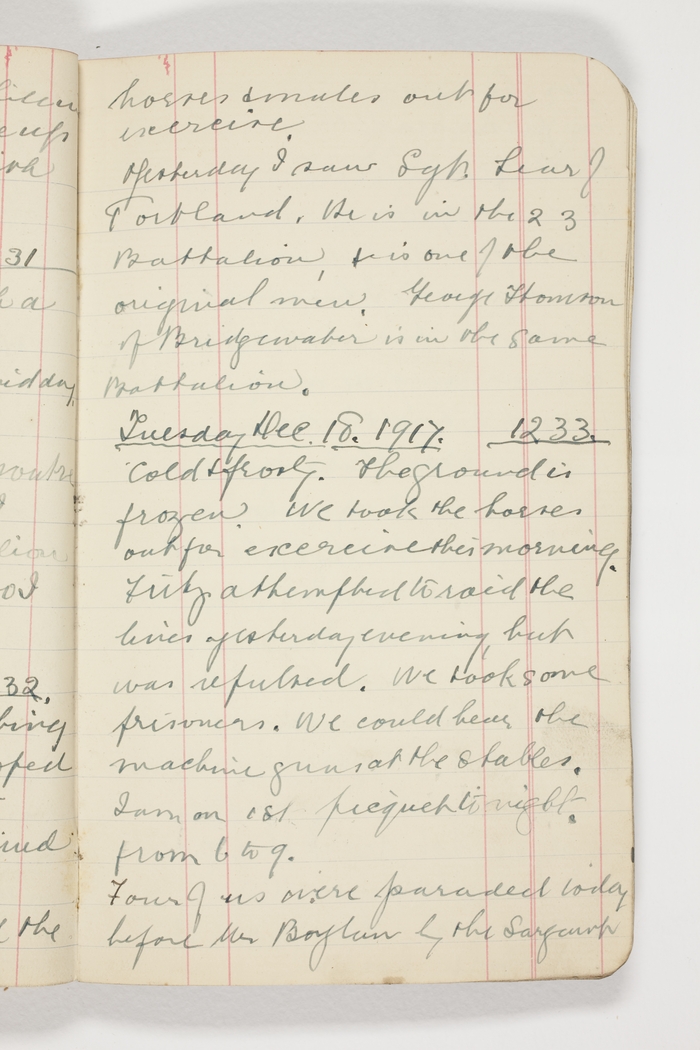 horses & mules out for
exercise.
Yesterday I saw Sgt. Lear of
Portland. He is in the 23
Battalion, & is one of the
original men. George Thomson
of Bridgewater is in the same
Battalion.
Tuesday Dec. 18. 1917. 1233.
Cold & frosty. The ground is
frozen. We took the horses
out for excercise this morning.
Fritz attempted to raid the
lines yesterday evening, but
was repulsed. We took some
prisoners. We could hear the
machine guns at the stables.
I am on 1st picquet to night.
from 6 to 9.
Four of us were paraded today
before Mr Boylan by the Sargeant
31
h a
idday
lion
32.
bing
oped
ined
the